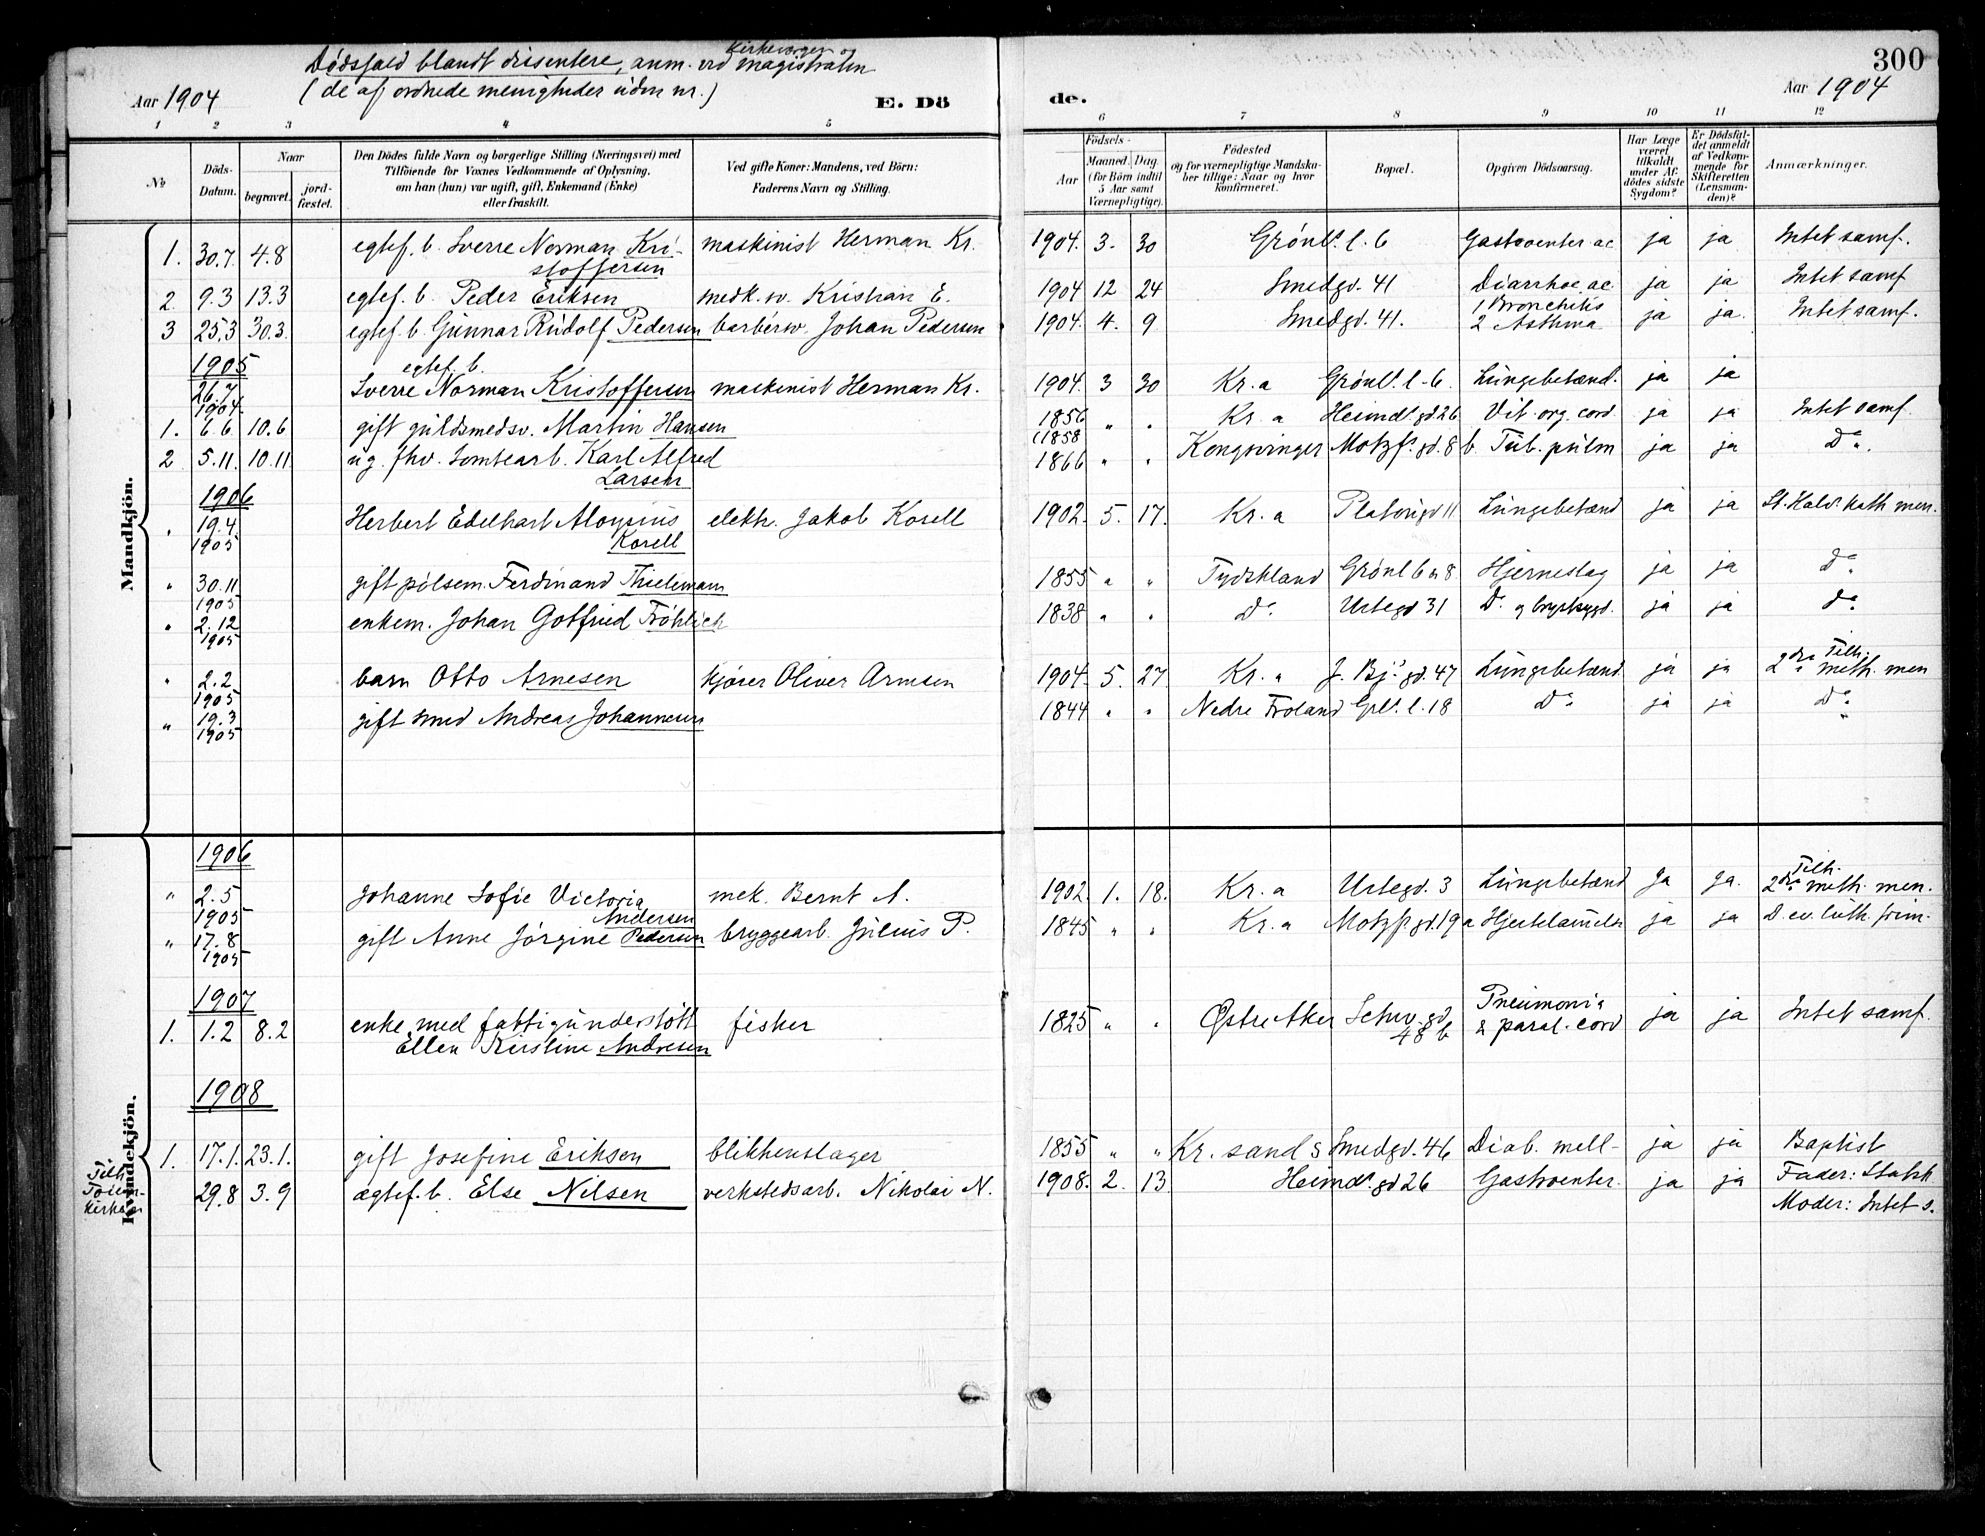 300
Dödsfald blandt dissentere, anm. ved kirkeverger og magistraten
(de af ordnede menigheder uden nr.)
Aar 1904 E. Dö de. Aar 1904
1 2 3 4 5 6 7 8 9 10 11 12
№ Döds-Datum. Naar begravet. jord-fæstet. Den Dödes fulde Navn og borgerlige Stilling (Næringsvei) med Tilföiende for Voxnes Vedkommende af Oplysning, om han (hun) var ugift, gift, Enkemand (Enke) eller fraskilt. Ved gifte Koner: Mandens, ved Börn: Faderens Navn og Stilling. Födsels- Aar Maaned. Dag. (for Börn indtil 5 Aar samt Værnepligtige). Födested og for værnepligtige Mandskaber tillige: Naar og hvor konfirmeret. Bopæl. Opgiven Dödsaarsag. Har Læge været tilkaldt under Afdödes sidste Sygdom? Er Dödsfaldet anmeldt af Vedkommende for Skifteretten (Lensmanden)? Anmærkninger.
Mandkjön.
1. 30.7 4.8 egtef. b. Sverre Norman Kristoffersen maskinist Herman Kr. 1904. 3. 30 Grönl. l. 6 Gastroenter ac ja ja Intet samf.
2. 9.3 13.3 egtef. b. Peder Eriksen medk. sv. Kristian E. 1904 12 24 Smedgd. 41 Diarrhoe ac. ja ja Intet samf
3 25.3 30.3. egtef. b. Gunnar Rudolf Pedersen barbersv. Johan Pedersen 1904. 4. 9 Smedgd. 41. 1 Bronchitis 2 Asthma ja ja. Intet samf.
1905
26.7 1904 egtef. b. Sverre Norman Kristoffersen maskinist Herman Kr. 1904. 3 30 Kr.a Grönl. l-6. Lungebetænd. ja ja
1. 6.6. 10.6 gift guldsmedsv. Martin Hansen 1856 (1858 " . Kr. a Heimdl. gd. 26 Vit. org. cord ja ja Intet samf.
2 5.11. 10.11 ug. fhv. tomtearb. Karl Alfred Larsen 1866 " " Kongsvinger Motzf. gd. 8 b. Tub. pulm ja ja Do.
1906
" 19.4 1905 Herbert Edelhart Aloysius Korell elektr. Jakob Korell 1902. 5. 17. Kr. a Platougd 11 Lungebetænd ja ja St. Halv. kath men.
" 30.11 1905 gift pölsem. Ferdinand Thielemann 1855 " " Tydskland Grönl 6 a 8 Hjerneslag ja ja Do
" 2.12 1905 enkem. Johan Gotfried Fröhlich 1838 " " Do. Urtegd 31 Do. og brystsygd. ja ja do
" 2.2 1905 barn Otto Arnesen kjörer Oliver Arnesen 1904. 5. 27. Kr. a J. Bj. gd. 47 Lungebetænd. ja ja Tilh. 2den meth. men
" 19.3 1905 gift smed Andreas Johannesen 1844 " " Nedre Froland Grl. l. 18 Do ja ja Do
Kvindekjön.
1906
" 2.5 1905 Johanne Sofie Victoria Andersen mek. Bernt A. 1902. 1. 18. Kr. a Urtegd. 3 Lungebetænd ja ja. Tilh. 2den meth. men.
" 17.8 1905 gift Anne Jörgine Pedersen bryggearb. Julius P. 1845 " " Kr. a Motzf. gd. 19 a Hjertelammelse ja ja D. ev. luth. frim.
1907
1. 1.2 8.2 enke med fattigunderstött Ellen Kirstine Andresen fisker 1825 " . Östre Aker Schw. gd. 48 b Pneumonia & paral. cord ja ja Intet samf.
1908
1. 17.1. 23.1. gift Josefine Eriksen blikkenslager 1855 " " Kr. sand s Smedgd. 46 Diab. mell- ja ja Baptist
Tilh. Töienkirken 29.8 3.9 ægtef. b. Else Nilsen verkstedsarb. Nikolai N. 1908. 2. 13. Heimdl. gd 26 Gastroenter. ja ja Fader: Statsk. Moder: Intet s.